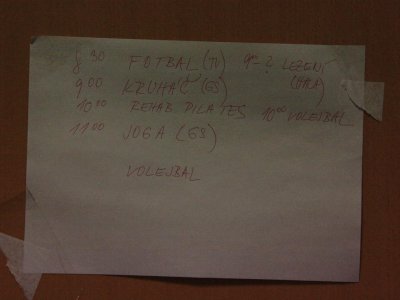 8 30 FOTBAL (TV) 9°°- ? LEZENÍ
9 00 KRUHÁČ (GS) (HALA)
10 00 REHAB. PILATES 10 00 VOLEJBAL
11 00 JOGA (GS)
VOLEJBAL